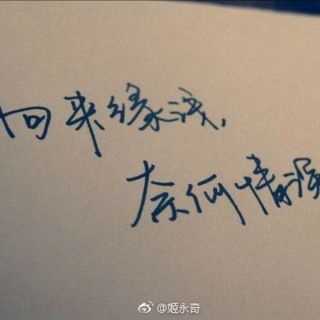 向来缘浅,
奈何情深
@姬永奇